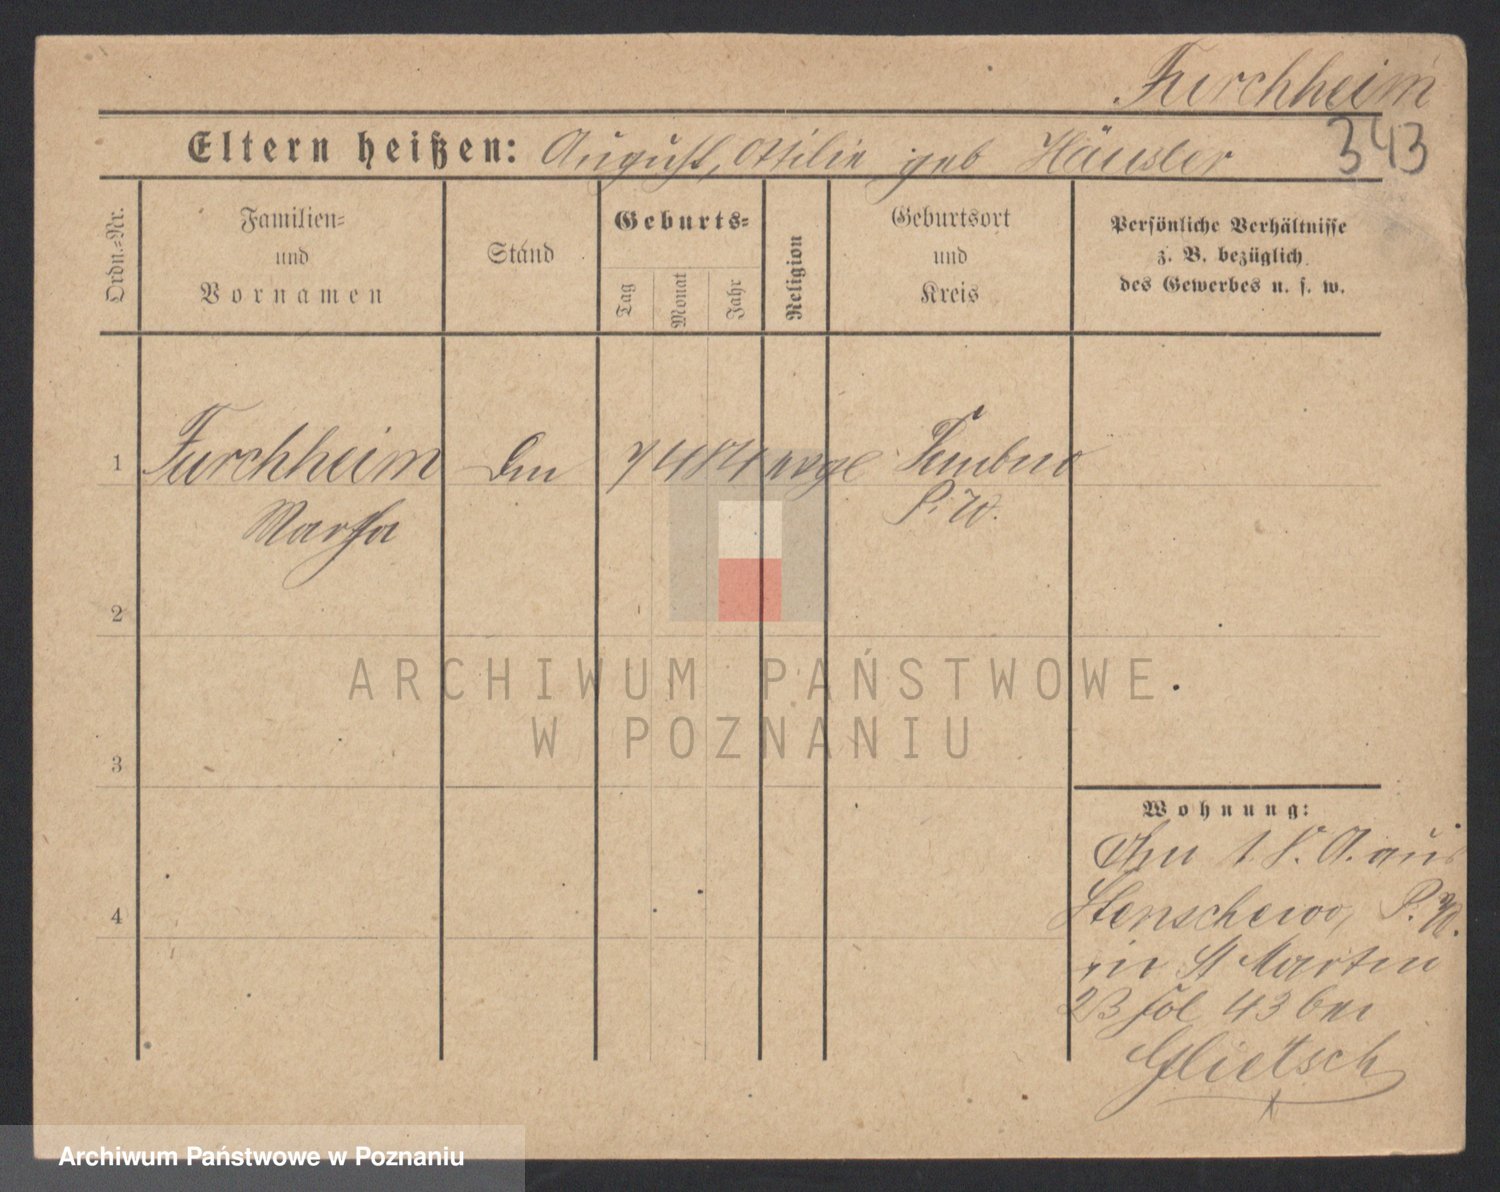 Furchheim
343
Eltern heißen: August, Ottilie geb Häusler
Ordn.-Nr.
Familien-
und
Vornamen
Stand
Geburts-
Tag
Monat
Jahr
Religion
Geburtsort
und
Kreis
Persönliche Verhältnisse
z. B. bezüglich
des Gewerbes u. s. w.
1
Furchheim
7 4
Martha
2
ARCHIWUM PAŃSTWOWE
W POZNANIU
3
Wohnung:
aus
Stenschewo,
in St Martin
23 43 bei
Glietsch
4
Archiwum Państwowe w Poznaniu